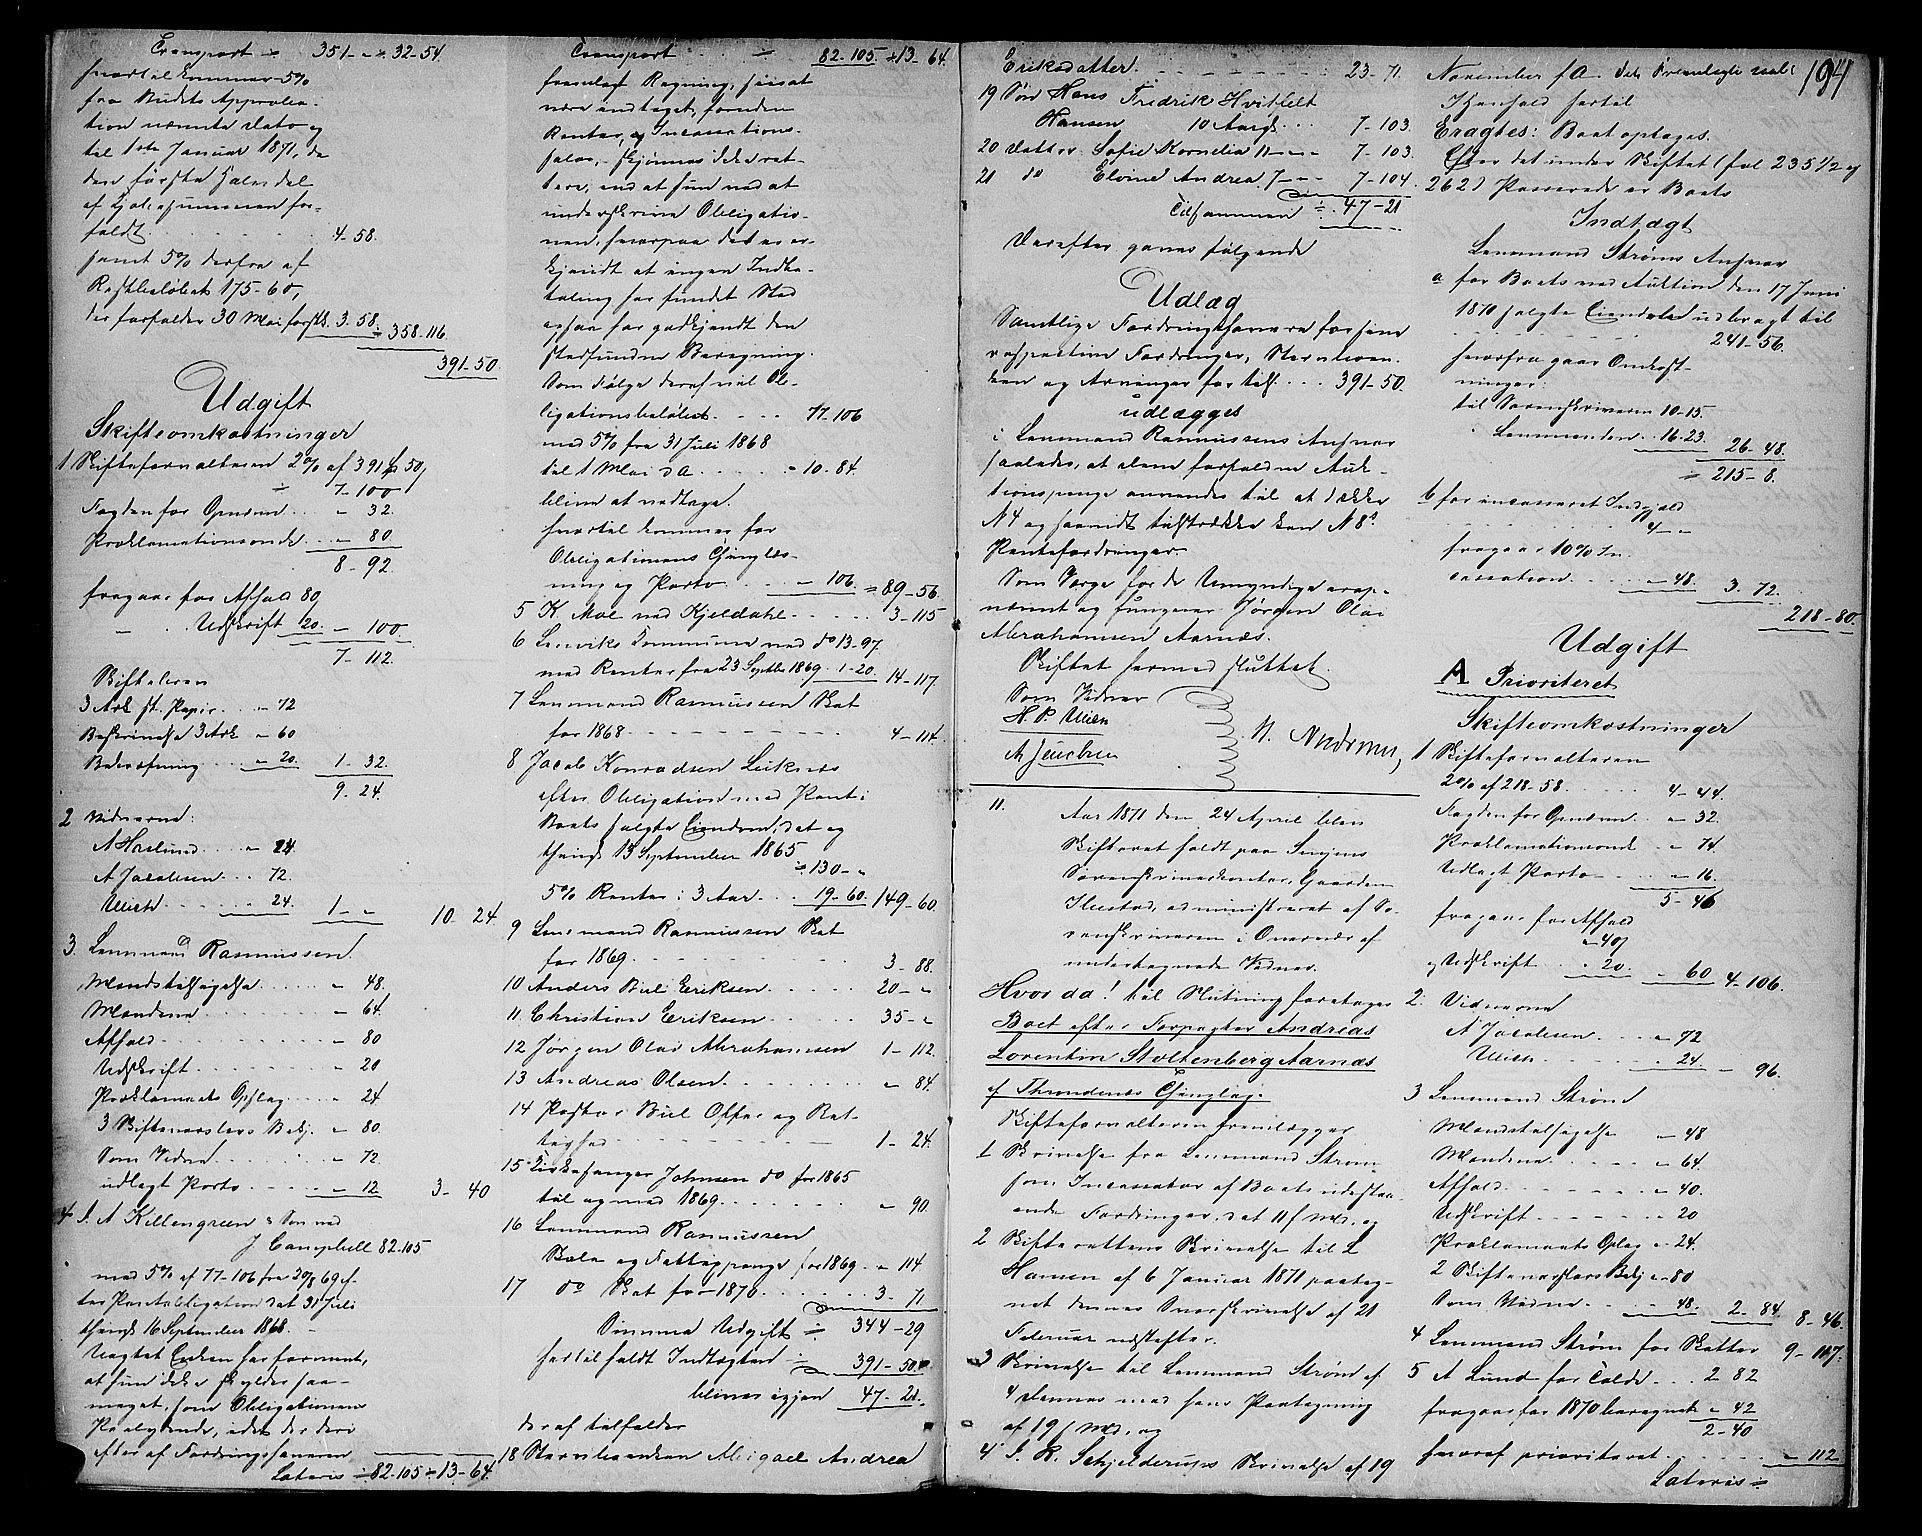 Transport ÷ 351 - " ÷ 32-54
hvortil kommer 5%
fra Budets Approba-
tion nævnte Dato og
til 1ste Januar 1871, da
den første Halvdel
af Kjøbesummen for-
faldt 4-58.
samt 5% derfra af
Restbeløbet 175-60,
der forfalder 30 Mai førstk. 3.58. ÷ 358.116
391-50
Udgift
Skifteomkostninger
1 Skifteforvalteren 2% af 391 50,
÷ 7-100
Fogden for Gjennem " 32.
Proklamationsomk. - 80
8-92.
fragaar for Afhold 80,
" Udskrift 20. - 100.
7-112.
Skifteloven
3 Ark st. Papir - 72
Beskrivelse 3 Ark - 60
Bekræftning - 20. 1-32
9-24.
2 Vidnerne:
A Haslund - 24
A Jacobsen 72.
Ulich 24. 1 - " 10. 24
3. Lensmand Rasmussen.
Mandstilsigelse - 48.
Mændene - 64
Afhold - 80
Udskrift - 20
Proklamaets Opslag - 24
3 Skiftevarslers Bekj. - 80
Som Vidne - 72
udlagt Porto - 12 3-40
4 J. A Killengreen & Søn ved
J Campbell 82.105
med 5% af 77-106 fra 30/8 69 ef-
ter Pantobligation dat 31 Juli
thingl 16 September 1868.
Uagtet Enken har forment,
at hun ikke skylder saa-
meget, som Obligationens
Paalydende, idet der deri
efter af Fordringshaveren
Lateris ÷ 82.105 ÷ 13-64.
Transport ÷ 82.105 ÷ 13-64
fremlagt Regning, skjønt
være indtaget, foruden
Renter, og Incassations-
salær, skjønnes ikke ret-
tere, end at hun ved at
underskrive Obligatio-
nen, hvorpaa det er er-
kjendt at ingen Indbe-
taling har fundet Sted
ogsaa har godkjendt den
stedfundne Beregning.
Som Følge deraf vil Ob-
ligationsbeløbet 77.106
med 5% fra 31 Juli 1868
til 1 Mai d A - 10-84.
blive at vedtage.
hvortil kommer for
Obligationens Thinglæs-
ning og Porto - 106 ÷ 89-56.
5 K Moe ved Kjeldahl 3-115
6 Lenviks Kommune ved do 13-97
med Renter fra 23 Septbr 1869. 1-20. 14-117
7 Lensmand Rasmussen Skat
for 1868 4-114.
8 Jacob Konradsen Leiknes
efter Obligation med Pant i
Boets solgte Eiendom, dat og
thingl 13 September 1865
÷ 130 - "
5% Renter i 3 Aar 19-60. 149-60.
9 Lensmand Rasmussen Skat
for 1869. 3-88.
10 Anders Biel Eriksen 20 - "
11. Christian Eriksen 35 - "
12 Jørgen Olai Abrahamsen 1-112.
13 Andreas Olsen " 84.
14 Pastor Biel Offer og Ret-
tighed 1-24.
15 Kirkesanger Johnsen do for 1865
til og med 1869 " 90.
16 Lensmand Rasmussen
Skole og Fattigpenge for 1869 " 114
17 do Skat for 1870 3-71
Summa Udgift ÷ 344-29
hertil holdt Indtægten ÷ 391-50.
blives igjen 47-21.
deraf tilfalder
18 Stervboenken Abigael Andrea
Eriksdatter 23-71.
19 Søn Hans Fredrik Hvitfelt
Hansen 10 Aargl. 7-103.
20 Datter Sofie Kornelia 11 - " 7-103.
21 do Elvine Andrea 7 - " 7-104.
Tilsammen ÷ 47-21
Derefter gjøres følgende
Udlæg
Samtlige Fordringshavere for sine
respective Fordringer, Stervboen-
ken og Arvinger for tils. 391-50.
udlægges
i Lensmand Rasmussens Ansvar
saaledes, at alene forfaldne Auk-
tionspenge anvendes til at dække
N 4 og saavidt tilstrække kan N 8s
Pantefordringer.
Som Værge for de Umyndige er op-
nævnt og fungerer Jørgen Olai
Abrahamsen Aarnæs.
Skiftet hermed sluttet.
Som Vidner
H. P. Ulich
A Jacobsen
11.
Aar 1871 den 24 April blev
Skifteret holdt paa Senjens
Sorenskriverkontor, Gaarden
administreret af So-
renskriveren i Overvær af
undertegnede Vidner.
Hvor da! til Slutning foretoges
Boet efter Forpagter Andreas
Lorentin Stoltenberg Aarnæs
af Throndenæs Thinglag.
Skifteforvalteren fremlægger
1 Skrivelse fra Lensmand Strøm
som Incassator af Boets udestaa-
ende Fordringer, dat 11 f Md. og
2 Skifterettens Skrivelse til L
Hansen af 6 Januar 1871 paateg-
net dennes Svarskrivelse af 21
Februar næstefter.
3 Skrivelse til Lensmand Strøm af
4 dennes med hans Paategning
af 19 f Md. og
4 J. R. Schjelderups Skrivelse af 19
194
November f A. det Fremlagte saal.
Ihænhold hertil
Eragtes: Boet optages.
Efter det under Skiftet (fol 235 1/2 og
262) Passerede er Boets
Indtægt
Lensmand Strøms Ansvar
a for Boets ved Auktion den 17 Juni
1870 solgte Eiendele udbragt til
241-56.
hvorfra gaar Omkost-
ninger:
til Sorenskriveren 10-15.
" Lensmanden 16-23. 26-48.
÷ 215-8.
b for incasseret Indgjæld
4 - "
fragaar 10% In-
cassation - 48. 3.72.
218-80.
Udgift
A Prioriteret
Skifteomkostninger
1 Skifteforvalteren
2% af 218-58. 4-44.
Fogden for Gjennem " 32.
Proklamationsomk - 74.
Udlagt Porto - 16.
5-46
fragaar for Afhold
- 40,
og Udskrift - 20. - 60 4-106.
2. Vidnerne
A Jacobsen - 72
Ulich - 24. - 96.
3 Lensmand Strøm
Mandstilsigelse - 48
Mændene - 64.
Afhold - 40.
Udskrift - 20
Proklamaets Opslag - 24.
2 Skiftevarslers Bekj - 80
Som Vidne - 48. 2-84 8-46.
4 Lensmand Strøm for Skatter 9-117.
5 A Lund for Told 2 82
fragaar for 1870 beregnet - 42
2-40
hvoraf prioriteret - 112
Lateris ÷